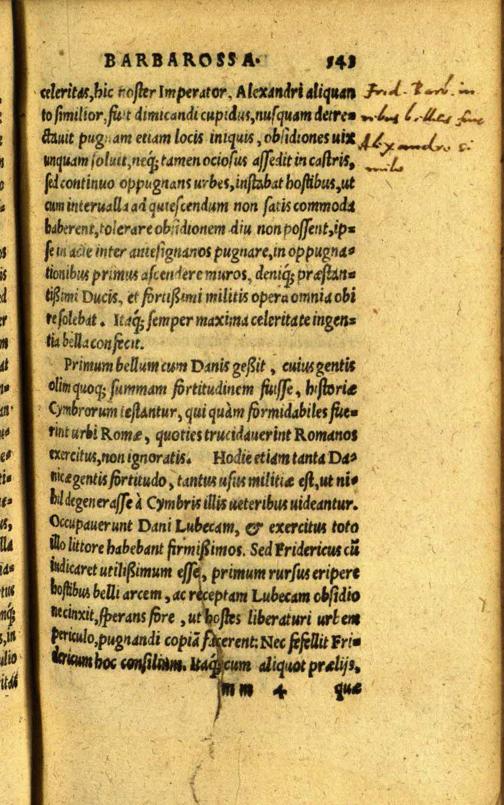 BARBAROSSA. 543
celeritas, hic noster Imperator. Alexandri aliquan
to similior, fuit dimicandi cupidus, nusquam detre-
ctauit pugnam etiam locis iniquis, obsidiones uix
unquam soluit, neq; tamen ociosus assedit in castris,
sed continuo oppugnans urbes, instabat hostibus, ut
cum interualla ad quiescendum non satis commoda
haberent, tolerare obsidionem diu non possent, ip-
se in acie inter antesignanos pugnare, in oppugna-
tionibus primus ascendere muros, deniq; præstan-
tißimi Ducis, et fortißimi militis opera omnia obi
re solebat. Itaq; semper maxima celeritate ingen-
tia bella confecit.
Primum bellum cum Danis geßit, cuius gentis
olim quoq; summam fortitudinem fuisse, historiæ
Cymbrorum testantur, qui quàm formidabiles fue-
rint urbi Romæ, quoties trucidauerint Romanos
exercitus, non ignoratis. Hodie etiam tanta Da-
nicæ gentis fortitudo, tantus usus militiæ est, ut ni-
hil degenerasse à Cymbris illis ueteribus uideantur.
Occupauerunt Dani Lubecam, & exercitus toto
illo littore habebant firmißimos. Sed Fridericus cũ
iudicaret utilißimum esse, primum rursus eripere
hostibus belli arcem, ac receptam Lubecam obsidio
ne cinxit, sperans fore, ut hostes liberaturi urbem
periculo, pugnandi copiã facerent: Nec fefellit Fri-
dericum hoc consilium. Itaq; cum aliquot prælijs,
mm 4 quæ
Frid. Barb. in
Alexandro si
milis